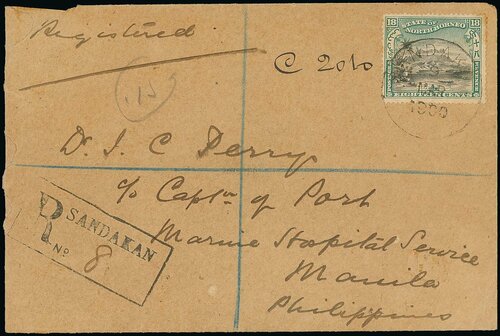 Registered
18 STATE OF NORTH BORNEO 18
EIGHTEEN CENTS
C 2010
.15
1900
Dr. J. C. Perry
c/o Captn of Port
Marine Hospital Service
Manila
Philippines
R SANDAKAN
No 8